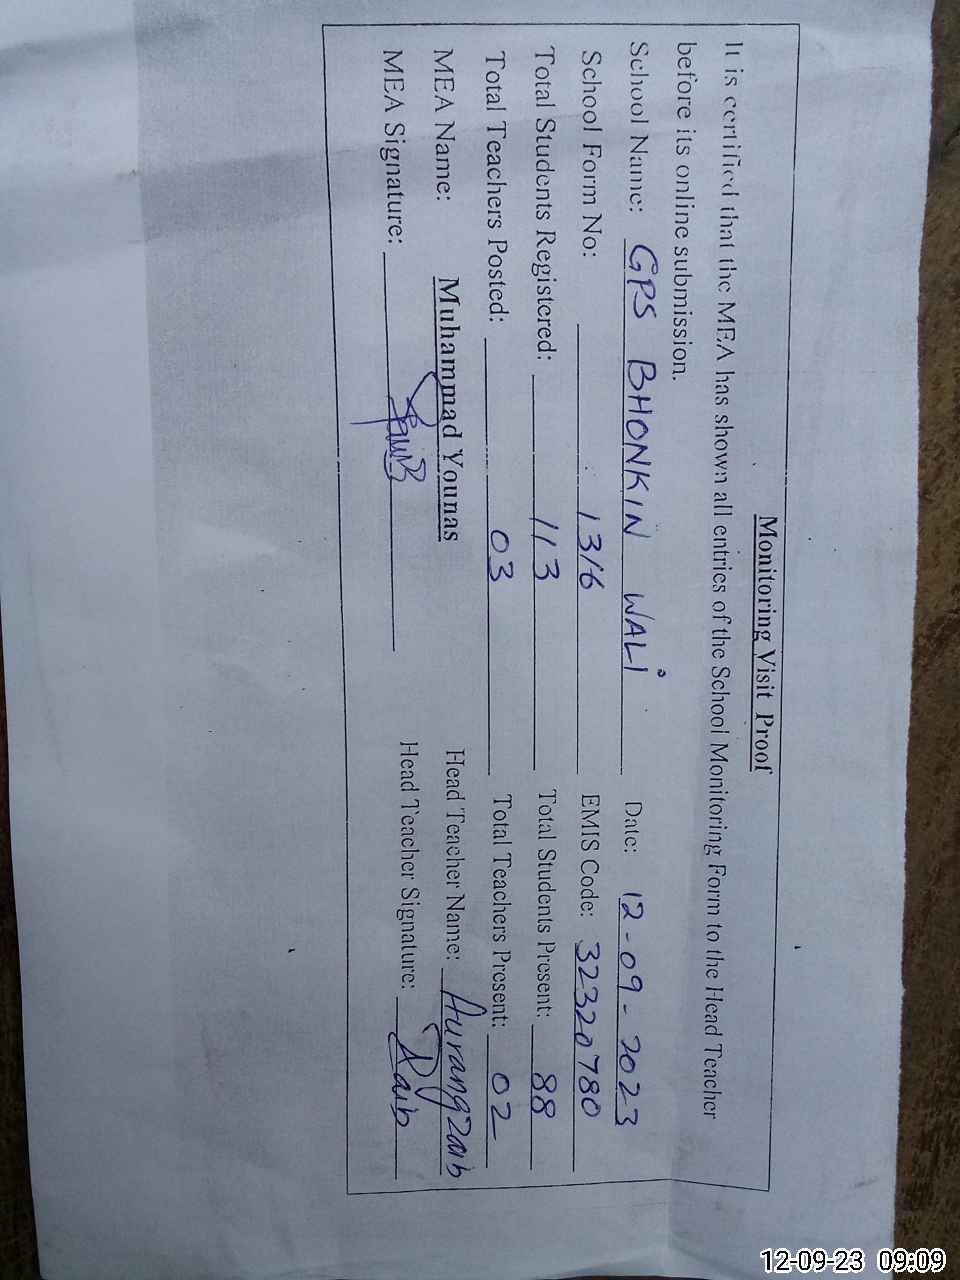 Monitoring Visit Proof
It is certified that the MEA has shown all entries of the School Monitoring Form to the Head Teacher
before its online submission.
School Name: GPS BHONKIN WALI Date: 12-09-2023
School Form No: 1316 EMIS Code: 32320780
Total Students Registered: 113 Total Students Present: 88
Total Teachers Posted: 03 Total Teachers Present: 02
MEA Name: Muhammad Younas Head Teacher Name: Aurangzaib
MEA Signature: Head Teacher Signature:
12-09-23 09:09